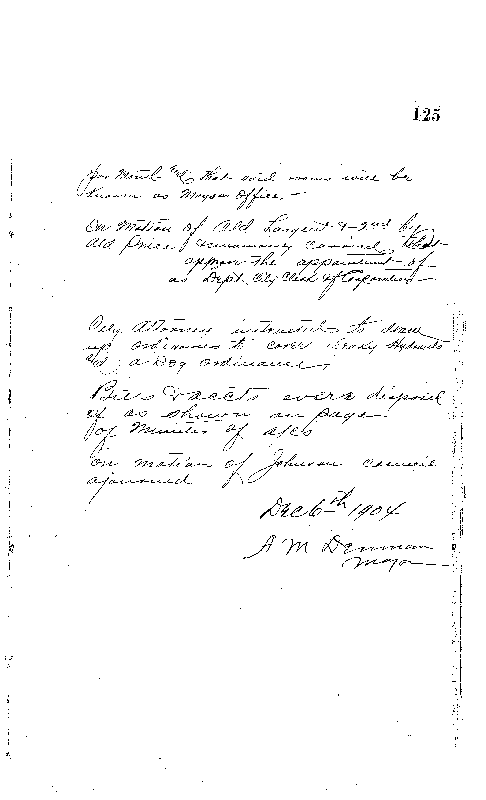 125
per Month & that said room will be
Known as Mayor Office. —
On Motion of Ald Largent & 2nd by
Ald Price, & unanimously carried, that
approve the appointment of
as Dept. City Clerk of Corporation —
City Attorney instructed to draw
up ordinance to cover Hydrants
a Dog ordinance,
Bills & accts were disposed
of as shown on page
for Minutes of a/cs
on motion of Johnson council
ajourned
Dec 6th 1904
A M Denman
Mayor